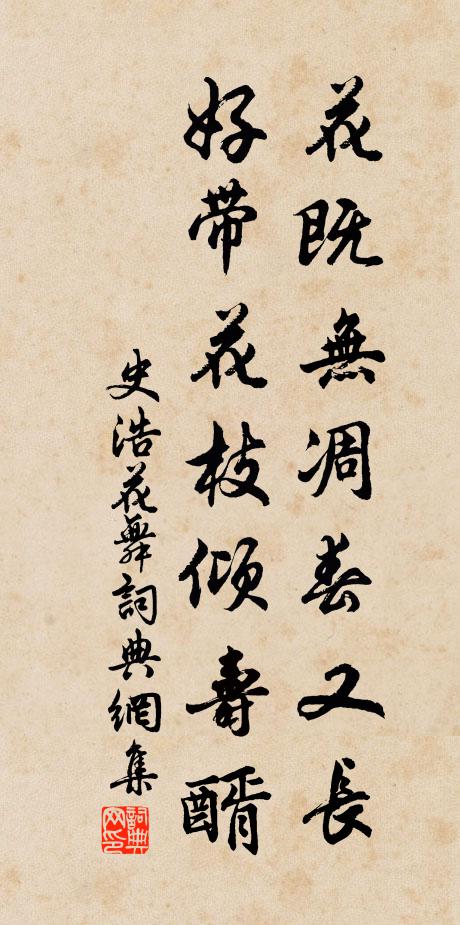 花既無凋春又長
好帶花枝傾壽醑
史浩花舞詞典網集
詞典網印